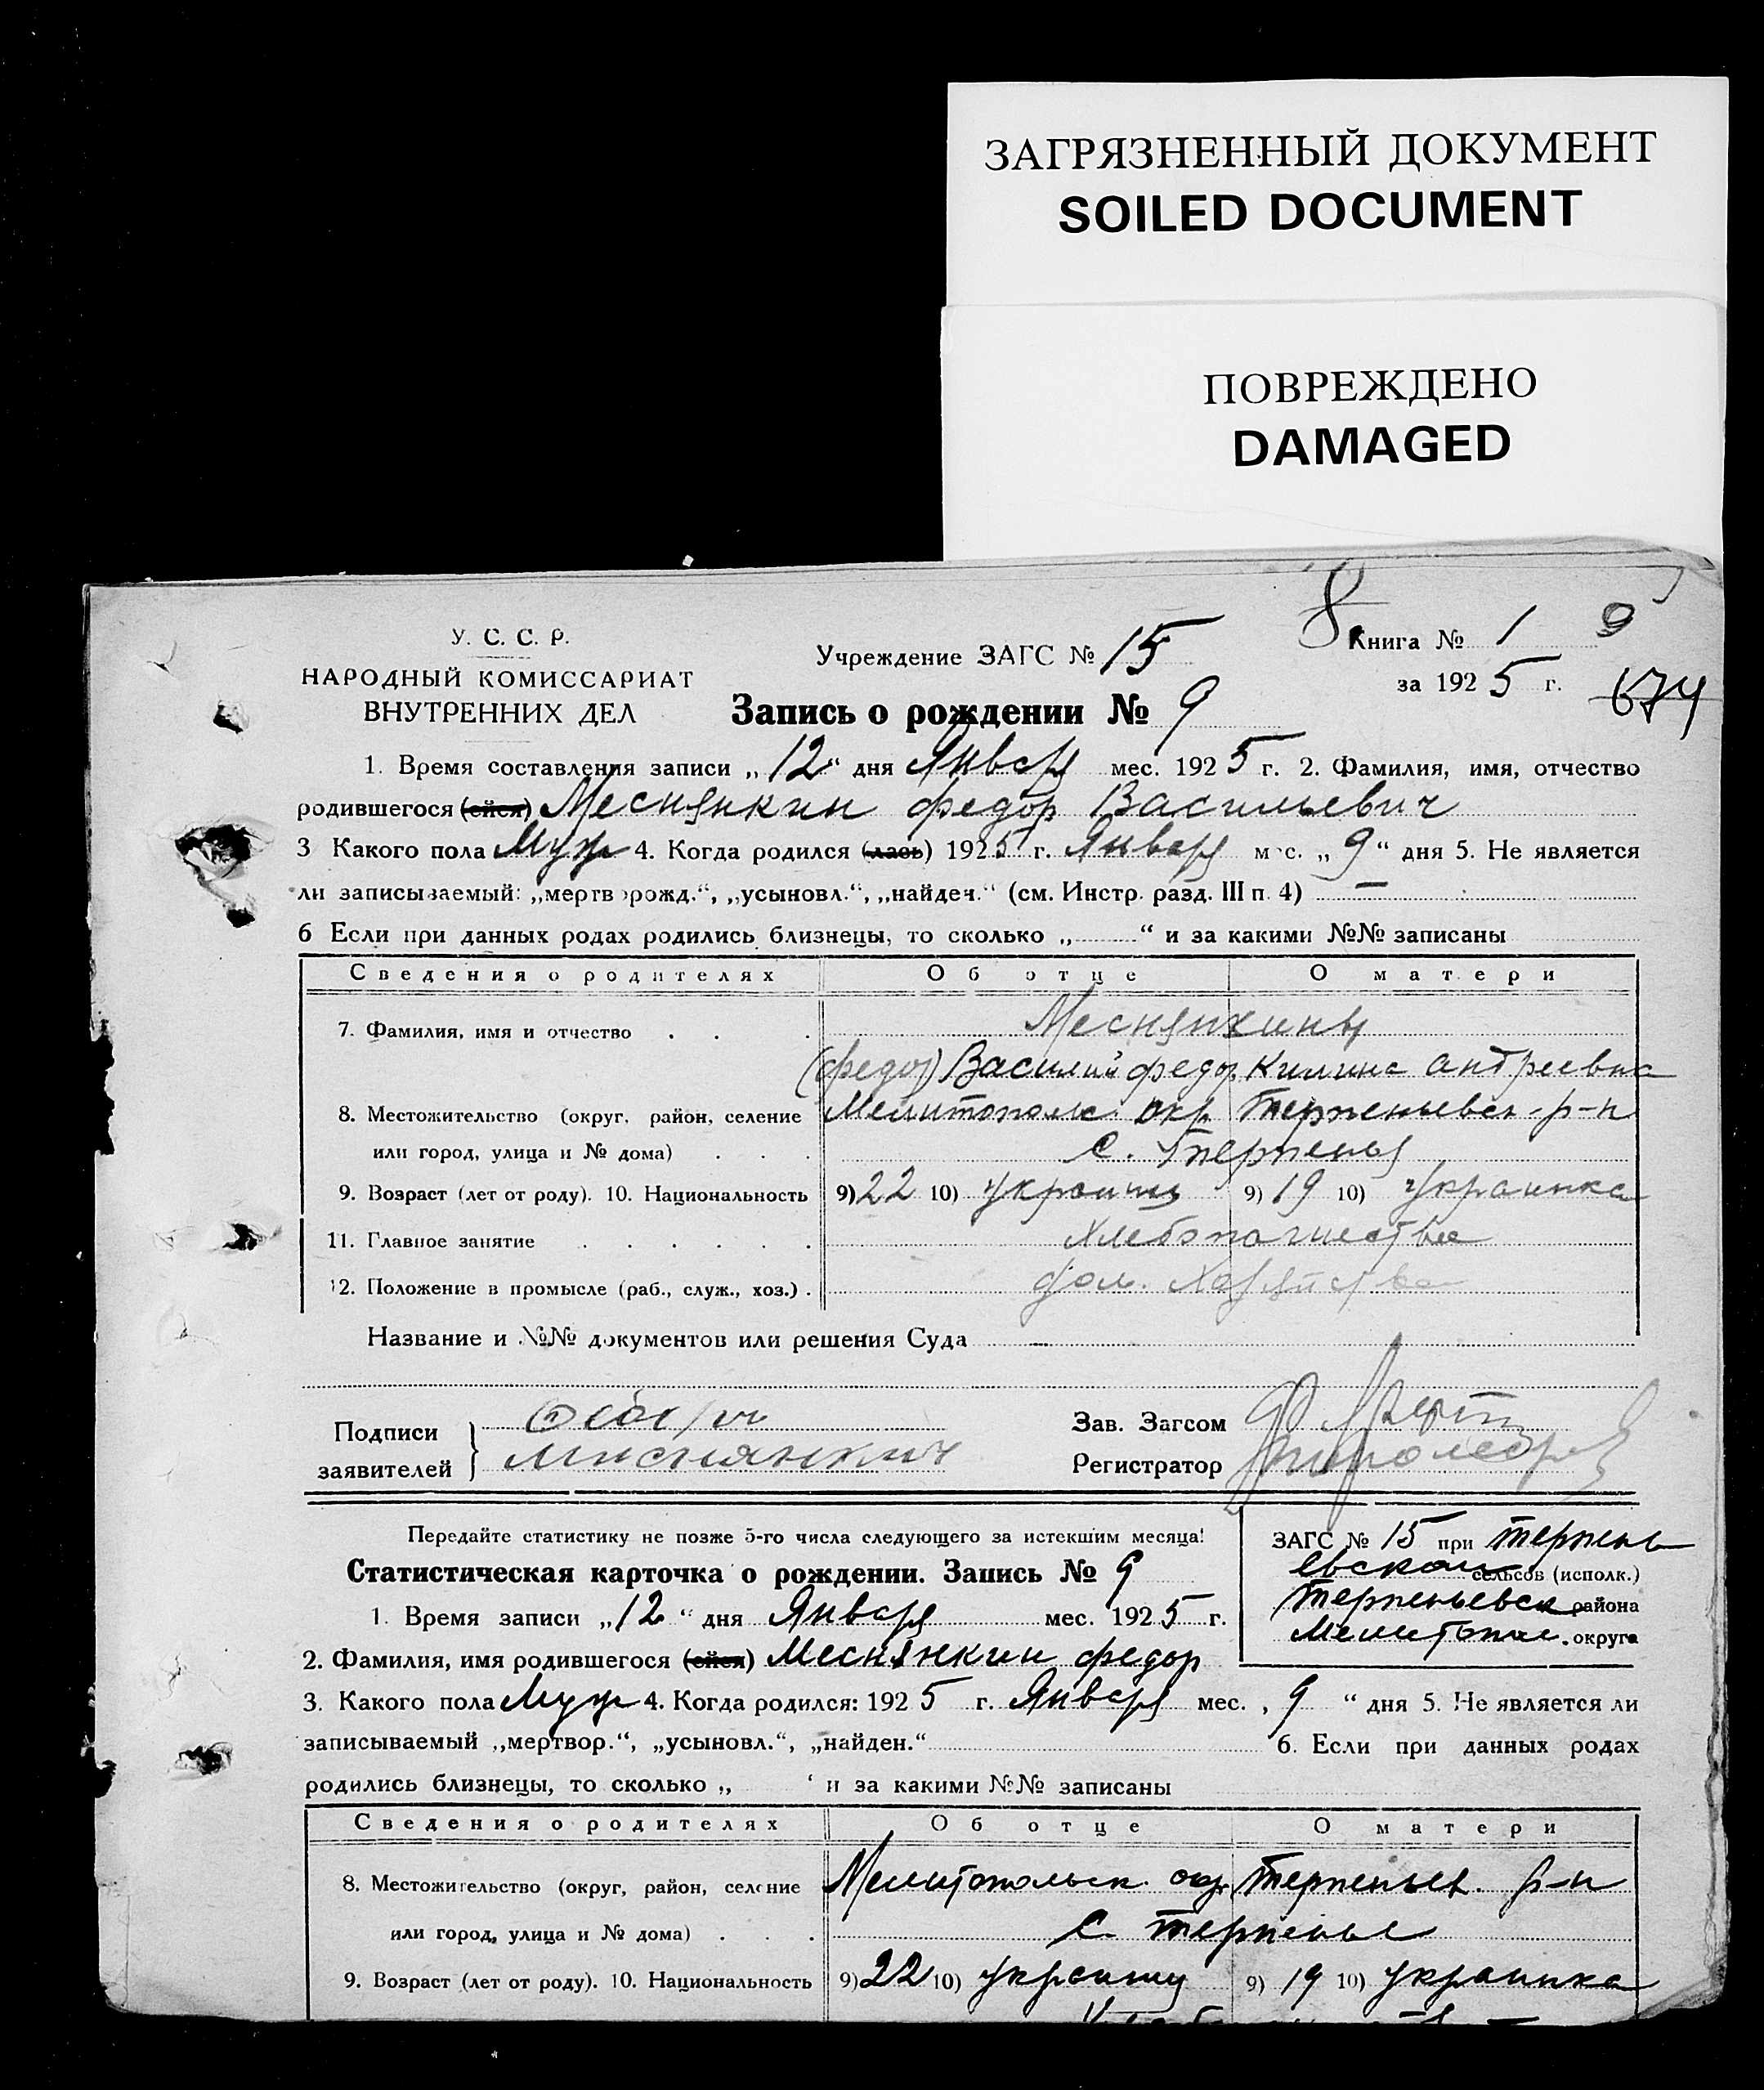 ЗАГРЯЗНЕННЫЙ ДОКУМЕНТ
SOILED DOCUMENT
ПОВРЕЖДЕНО
DAMAGED
У. С. С. Р.
НАРОДНЫЙ КОМИССАРИАТ
ВНУТРЕННИХ ДЕЛ
Учреждение ЗАГС № 15
Книга № 1 9
за 1925 г. 674
Запись о рождении № 9
1. Время составления записи „12“ дня Января мес. 1925 г. 2. Фамилия, имя, отчество
родившегося (ейся) Меснянкин Федор Васильевич
3 Какого пола Муж 4. Когда родился (лась) 1925 г. Января мес. „9“ дня 5. Не является
ли записываемый: „мертворожд.“, „усыновл.“, „найден.“ (см. Инстр. разд. III п. 4) —
6 Если при данных родах родились близнецы, то сколько „ “ и за какими №№ записаны
Сведения о родителях Об отце О матери
7. Фамилия, имя и отчество Меснянкины
(Федор) Василий Федор Килина Андреевна
8. Местожительство (округ, район, селение Мелитопольс. окр Терпеньевск р-н
или город, улица и № дома) с. Терпенья
9. Возраст (лет от роду). 10. Национальность 9) 22 10) украинц 9) 19 10) Украинка
11. Главное занятие Хлебопашество
12. Положение в промысле (раб., служ., хоз.)
Название и №№ документов или решения Суда
Подписи
заявителей
Зав. Загсом
Регистратор
Передайте статистику не позже 5-го числа следующего за истекшим месяца!
Статистическая карточка о рождении. Запись № 9
ЗАГС № 15 при Терпень
евском сельсов (исполк.)
Терпеньевск района
Мелитопол. округа
1. Время записи „12“ дня Января мес. 1925 г.
2. Фамилия, имя родившегося (ейся) Меснянкин Федор
3. Какого пола Муж 4. Когда родился: 1925 г. Января мес. „9“ дня 5. Не является ли
записываемый „мертвор.“, „усыновл.“, „найден.“ 6. Если при данных родах
родились близнецы, то сколько „ “ и за какими №№ записаны
Сведения о родителях Об отце О матери
8. Местожительство (округ, район, селение Мелитопольск. окр. Терпеньев. р-н
или город, улица и № дома) с. Терпенье
9. Возраст (лет от роду). 10. Национальность 9) 22 10) украинц 9) 19 10) украинка